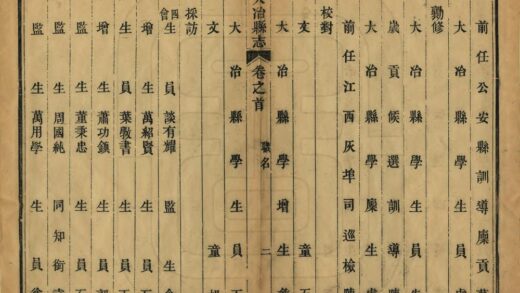 前任公安縣訓導廩貢
大冶縣學生員
勷修
大冶縣學廩生
歲貢候選訓導
前任江西灰埠司巡檢
校對
文童
大冶縣學增生
大冶縣志 卷之首 職名 二
大冶縣學生員
文童
採訪
生員談有耀 監生
生員萬紹賢 生員
生員葉敎書 生員
增生蕭功鎮 生員
監生董秉忠 生員
監生周國純 同知銜
監生萬用學 生員